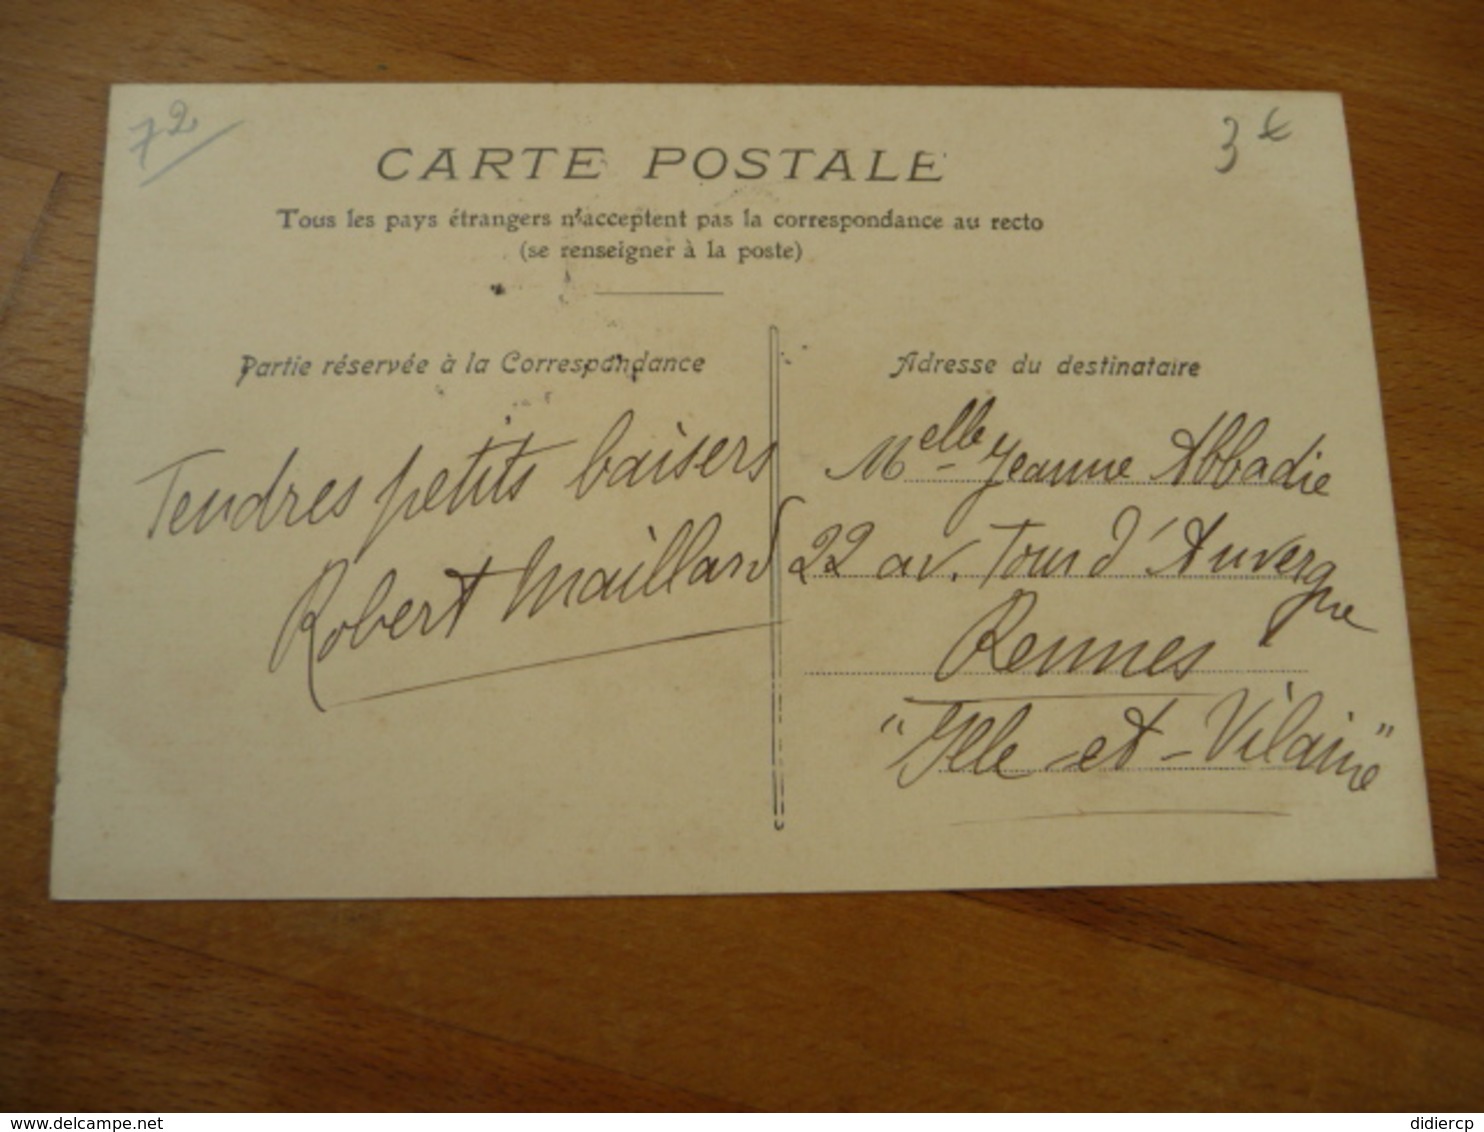 72
3€
CARTE POSTALE
Tous les pays étrangers n'acceptent pas la correspondance au recto
(se renseigner à la poste)
Partie réservée à la Correspondance
Tendres petits baisers
Robert Maillard
Adresse du destinataire
Melle Jeanne Abbadie
22 av. Tour d'Auvergne
Rennes
"Ille-et-Vilaine"
www.delcampe.net
didiercp